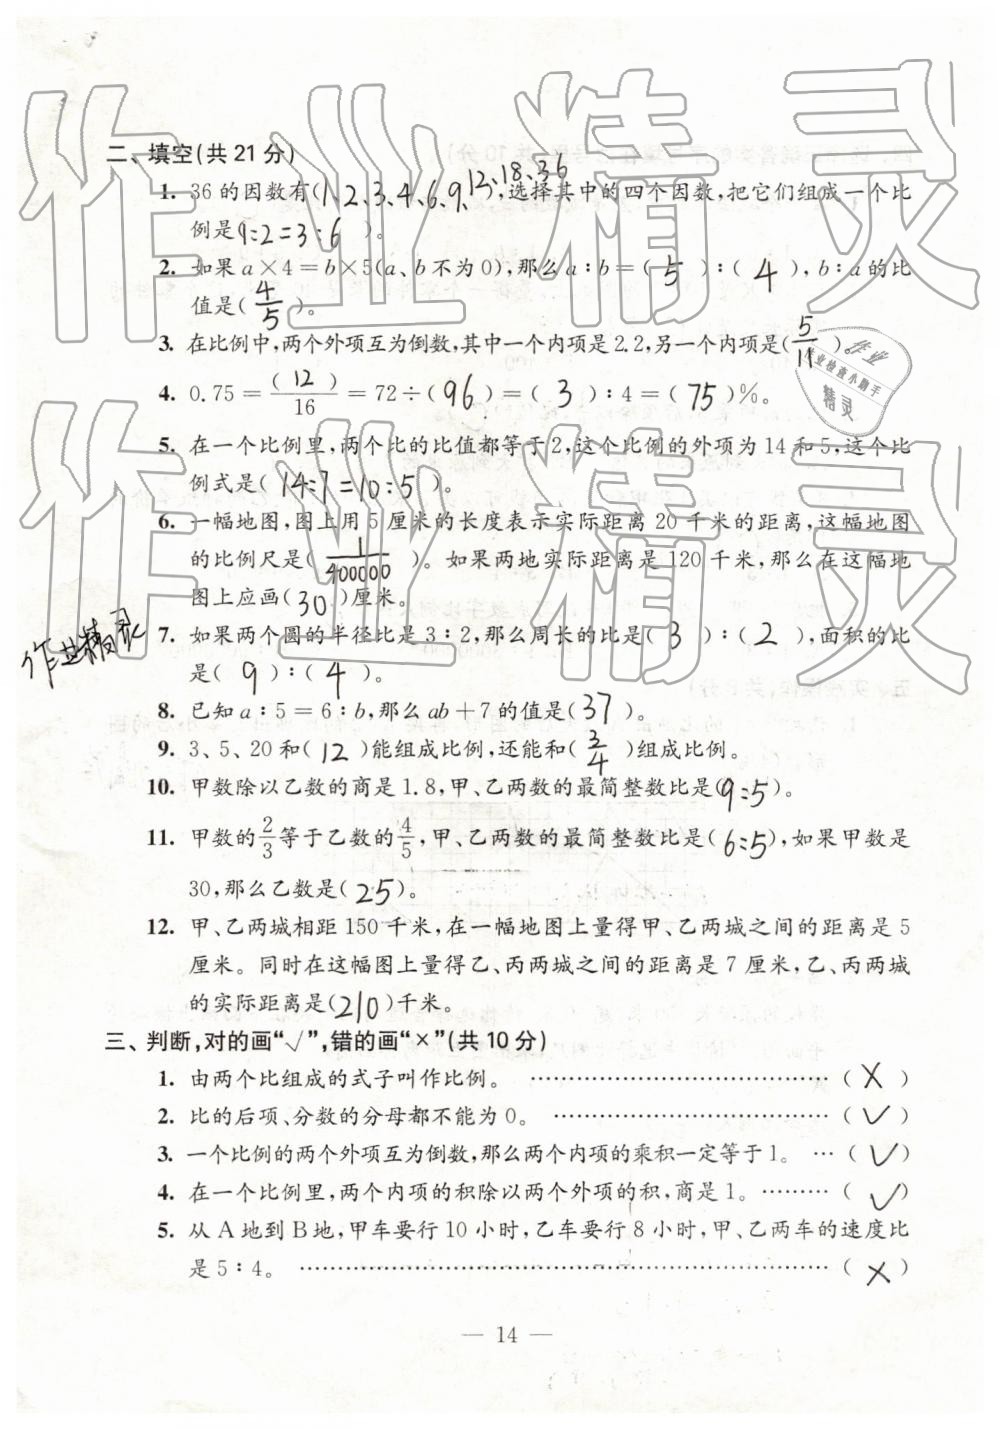 二、填空(共21分)
1. 36的因数有(1、2、3、4、6、9、12、18、36),选择其中的四个因数,把它们组成一个比
例是(9:2=3:6)。
2. 如果a×4=b×5(a、b不为0),那么a:b=(5):(4),b:a的比
值是(4/5)。
3. 在比例中,两个外项互为倒数,其中一个内项是2.2,另一个内项是(5/11)。
4. 0.75=(12)/16=72÷(96)=(3):4=(75)%。
5. 在一个比例里,两个比的比值都等于2,这个比例的外项为14和5,这个比
例式是(14:7=10:5)。
6. 一幅地图,图上用5厘米的长度表示实际距离20千米的距离,这幅地图
的比例尺是(1/400000)。如果两地实际距离是120千米,那么在这幅地
图上应画(30)厘米。
7. 如果两个圆的半径比是3:2,那么周长的比是(3):(2),面积的比
是(9):(4)。
8. 已知a:5=6:b,那么ab+7的值是(37)。
9. 3、5、20和(12)能组成比例,还能和(3/4)组成比例。
10. 甲数除以乙数的商是1.8,甲、乙两数的最简整数比是(9:5)。
11. 甲数的2/3等于乙数的4/5,甲、乙两数的最简整数比是(6:5),如果甲数是
30,那么乙数是(25)。
12. 甲、乙两城相距150千米,在一幅地图上量得甲、乙两城之间的距离是5
厘米。同时在这幅图上量得乙、丙两城之间的距离是7厘米,乙、丙两城
的实际距离是(210)千米。
三、判断,对的画“√”,错的画“×”(共10分)
1. 由两个比组成的式子叫作比例。 ……………………………… (×)
2. 比的后项、分数的分母都不能为0。 ………………………… (√)
3. 一个比例的两个外项互为倒数,那么两个内项的乘积一定等于1。 … (√)
4. 在一个比例里,两个内项的积除以两个外项的积,商是1。 ……… (√)
5. 从A地到B地,甲车要行10小时,乙车要行8小时,甲、乙两车的速度比
是5:4。 …………………………………………………… (×)
— 14 —
作业精灵
作业精灵
作业精灵
作业
作业检查小助手
精灵